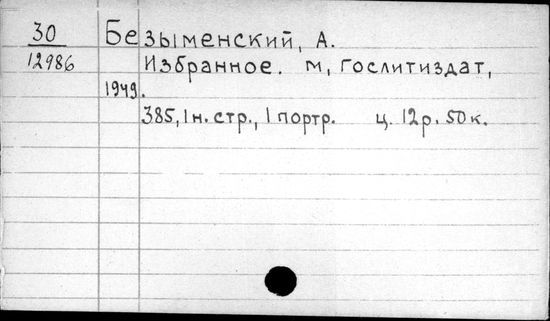 30 Безыменский, А.
12986 Избранное. м, Гослитиздат,
1949.
385, 1н. стр., 1 портр. ц. 12р. 50к.